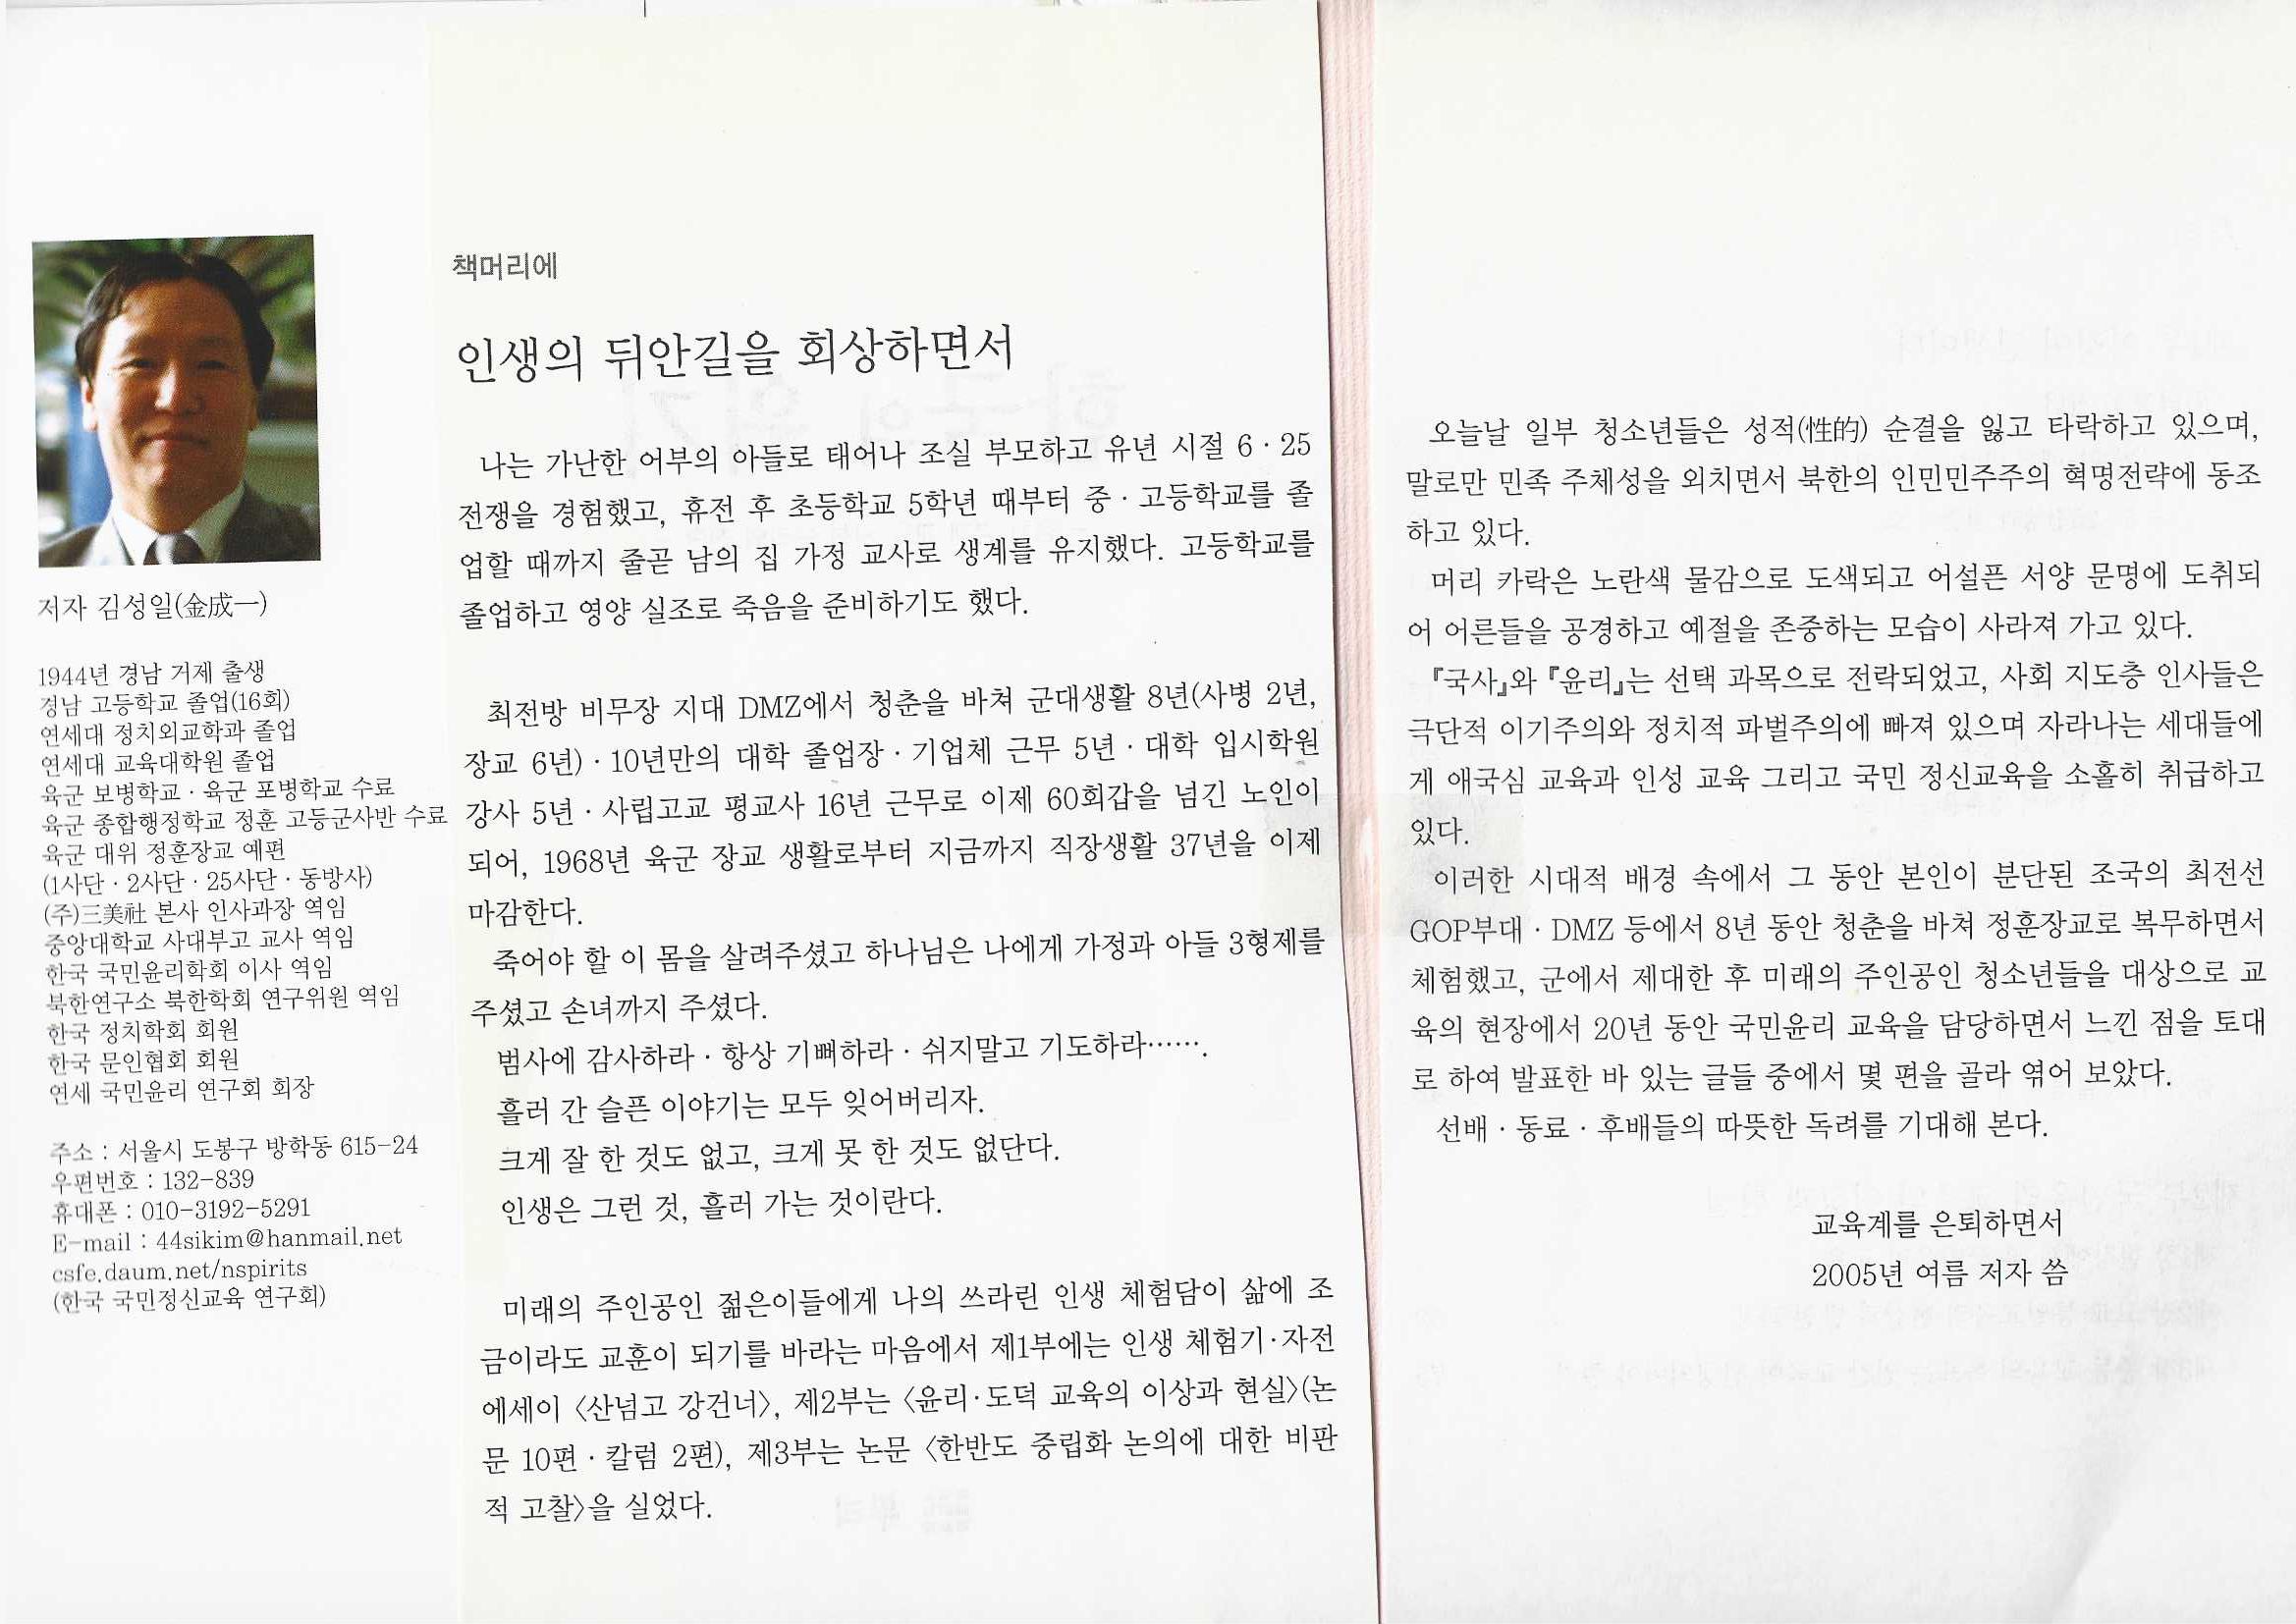 저자 김성일(金成一)
1944년 경남 거제 출생
경남 고등학교 졸업(16회)
연세대 정치외교학과 졸업
연세대 교육대학원 졸업
육군 보병학교 · 육군 포병학교 수료
육군 종합행정학교 정훈 고등군사반 수료
육군 대위 정훈장교 예편
(1사단 · 2사단 · 25사단 · 동방사)
(주)三美社 본사 인사과장 역임
중앙대학교 사대부고 교사 역임
한국 국민윤리학회 이사 역임
북한연구소 북한학회 연구위원 역임
한국 정치학회 회원
한국 문인협회 회원
연세 국민윤리 연구회 회장
주소 : 서울시 도봉구 방학동 615-24
우편번호 : 132-839
휴대폰 : 010-3192-5291
E-mail : 44sikim@hanmail.net
csfe.daum.net/nspirits
(한국 국민정신교육 연구회)
책머리에
인생의 뒤안길을 회상하면서
나는 가난한 어부의 아들로 태어나 조실 부모하고 유년 시절 6 · 25
전쟁을 경험했고, 휴전 후 초등학교 5학년 때부터 중 · 고등학교를 졸
업할 때까지 줄곧 남의 집 가정 교사로 생계를 유지했다. 고등학교를
졸업하고 영양 실조로 죽음을 준비하기도 했다.
최전방 비무장 지대 DMZ에서 청춘을 바쳐 군대생활 8년(사병 2년,
장교 6년) · 10년만의 대학 졸업장 · 기업체 근무 5년 · 대학 입시학원
강사 5년 · 사립고교 평교사 16년 근무로 이제 60회갑을 넘긴 노인이
되어, 1968년 육군 장교 생활로부터 지금까지 직장생활 37년을 이제
마감한다.
죽어야 할 이 몸을 살려주셨고 하나님은 나에게 가정과 아들 3형제를
주셨고 손녀까지 주셨다.
범사에 감사하라 · 항상 기뻐하라 · 쉬지말고 기도하라…….
흘러 간 슬픈 이야기는 모두 잊어버리자.
크게 잘 한 것도 없고, 크게 못 한 것도 없단다.
인생은 그런 것, 흘러 가는 것이란다.
미래의 주인공인 젊은이들에게 나의 쓰라린 인생 체험담이 삶에 조
금이라도 교훈이 되기를 바라는 마음에서 제1부에는 인생 체험기·자전
에세이 〈산넘고 강건너〉, 제2부는 〈윤리·도덕 교육의 이상과 현실〉(논
문 10편 · 칼럼 2편), 제3부는 논문 〈한반도 중립화 논의에 대한 비판
적 고찰〉을 실었다.
오늘날 일부 청소년들은 성적(性的) 순결을 잃고 타락하고 있으며,
말로만 민족 주체성을 외치면서 북한의 인민민주주의 혁명전략에 동조
하고 있다.
머리 카락은 노란색 물감으로 도색되고 어설픈 서양 문명에 도취되
어 어른들을 공경하고 예절을 존중하는 모습이 사라져 가고 있다.
『국사』와 『윤리』는 선택 과목으로 전락되었고, 사회 지도층 인사들은
극단적 이기주의와 정치적 파벌주의에 빠져 있으며 자라나는 세대들에
게 애국심 교육과 인성 교육 그리고 국민 정신교육을 소홀히 취급하고
있다.
이러한 시대적 배경 속에서 그 동안 본인이 분단된 조국의 최전선
GOP부대 · DMZ 등에서 8년 동안 청춘을 바쳐 정훈장교로 복무하면서
체험했고, 군에서 제대한 후 미래의 주인공인 청소년들을 대상으로 교
육의 현장에서 20년 동안 국민윤리 교육을 담당하면서 느낀 점을 토대
로 하여 발표한 바 있는 글들 중에서 몇 편을 골라 엮어 보았다.
선배 · 동료 · 후배들의 따뜻한 독려를 기대해 본다.
교육계를 은퇴하면서
2005년 여름 저자 씀